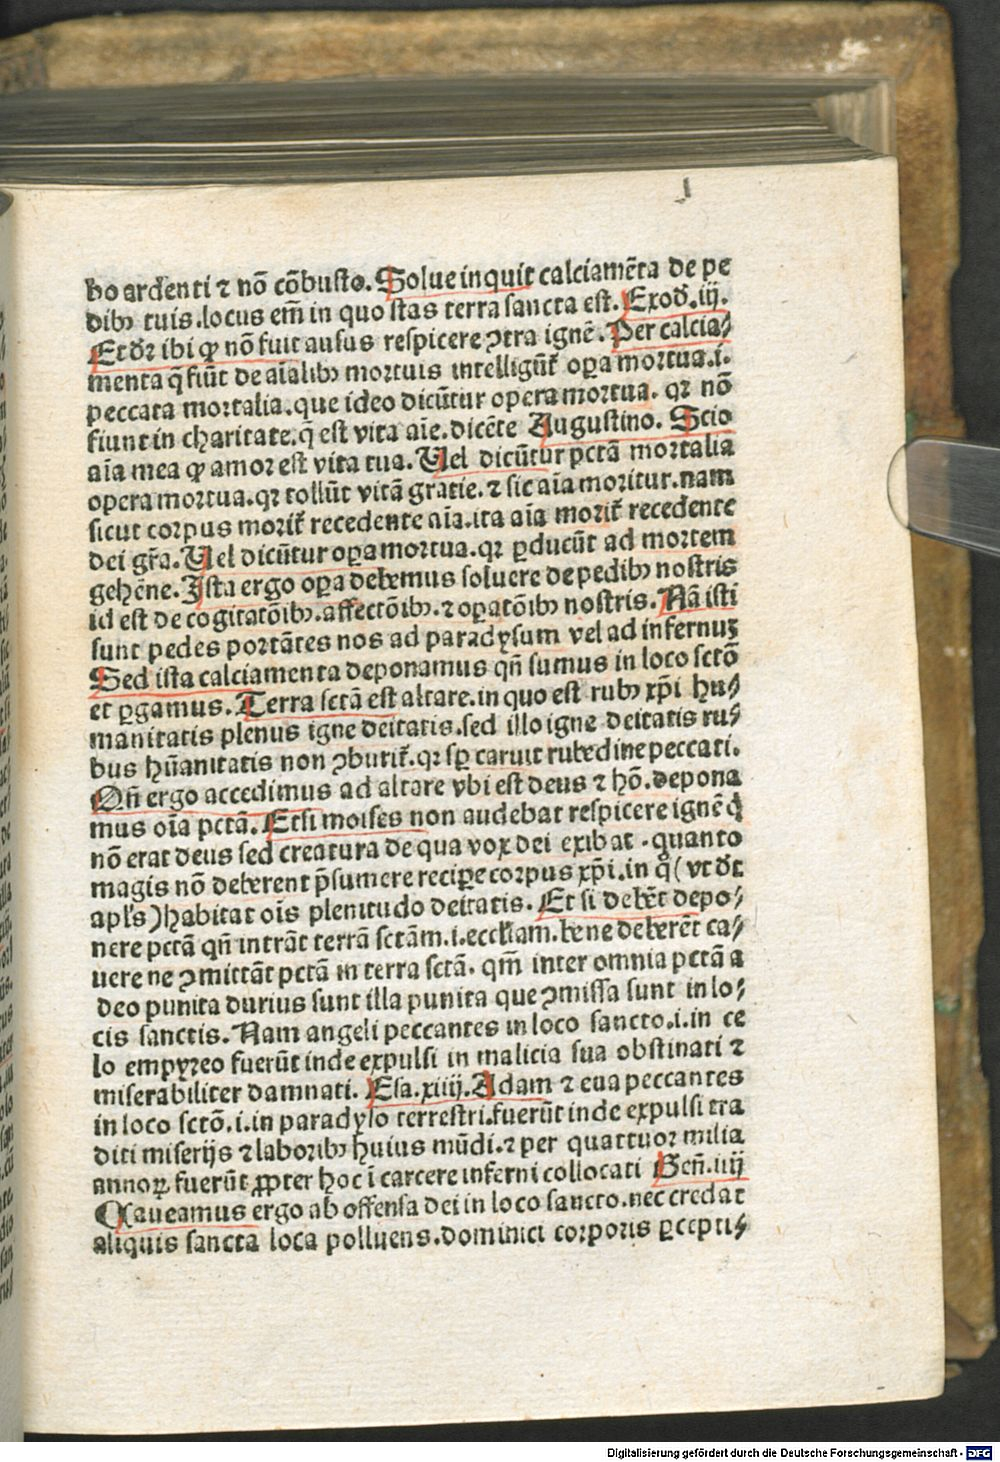 bo ardenti ⁊ nõ cõbusto. Solue inquit calciamẽta de pe
dibꝫ tuis. locus em̃ in quo stas terra sancta est. Exoď. iij.
Et dꝛ ibi ꝙ nõ fuit ausus respicere ꝯtra ignẽ. Per calcia⸗
menta q̃ fiũt de aĩalibꝫ moꝛtuis intelligũt̃ oꝑa moꝛtua .i.
peccata moꝛtalia. que ideo dicũtur opera moꝛtua. qꝛ nõ
fiunt in charitate. q̃ est vita aĩe. dicẽte Augustino. Scio
aĩa mea ꝙ amoꝛ est vita tua. Uel dicũtur pctã moꝛtalia
opera moꝛtua. qꝛ tollũt vitã gratie. ⁊ sic aĩa moꝛitur. nam
sicut coꝛpus moꝛit̃ recedente aĩa. ita aĩa moꝛit̃ recedente
dei gr̃a. Uel dicũtur oꝑa moꝛtua. qꝛ ꝑducũt ad moꝛtem
gehẽne. Ista ergo oꝑa debemus soluere de pedibꝫ nostris
id est de cogitatõibꝫ. affectõibꝫ. ⁊ oꝑatõibꝫ nostris. Nã isti
sunt pedes poꝛtãtes nos ad paradysum vel ad infernuꝫ
Sed ista calciamenta deponamus qñ sumus in loco sctõ
et ꝑgamus. Terra sctã est altare. in quo est rubꝫ xp̃i hu⸗
manitatis plenus igne deitatis. sed illo igne deitatis ru⸗
bus hũanitatis non ꝯburit̃. qꝛ sꝑ caruit rubedine peccati.
Qñ ergo accedimus ad altare vbi est deus ⁊ hõ. depona
mus oĩa pctã. Et si moises non audebat respicere ignẽ q̃
nõ erat deus sed creatura de qua vox dei exibat . quanto
magis nõ deberent p̃sumere reciꝑe coꝛpus xp̃i. in q̃ ( vt dꝛ̃
apl's ) habitat oĩs plenitudo deitatis. Et si debẽt depo⸗
nere pctã qñ intrãt terrã sctãm .i. eccłiam. bene deberẽt ca⸗
uere ne ꝯmittãt pctã in terra sctã. qm̃ inter omnia pctã a
deo punita durius sunt illa punita que ꝯmissa sunt in lo⸗
cis sanctis. Nam angeli peccantes in loco sancto .i. in ce
lo empyreo fuerũt inde expulsi in malicia sua obstinati ⁊
miserabiliter damnati. Esa. xiiij. Adam ⁊ eua peccantes
in loco sctõ .i. in paradyso terrestri. fuerũt inde expulsi tra
diti miserijs ⁊ laboꝛibꝫ huius mũdi. ⁊ per quattuoꝛ milia
annoꝝ fuerũt ꝓpter hoc ĩ carcere inferni collocati Geñ. iiij
Caueamus ergo ab offensa dei in loco sancto. nec credat
aliquis sancta loca polluens. dominici coꝛpoꝛis ꝑcepti⸗
Digitalisierung gefördert durch die Deutsche Forschungsgemeinschaft - DFG